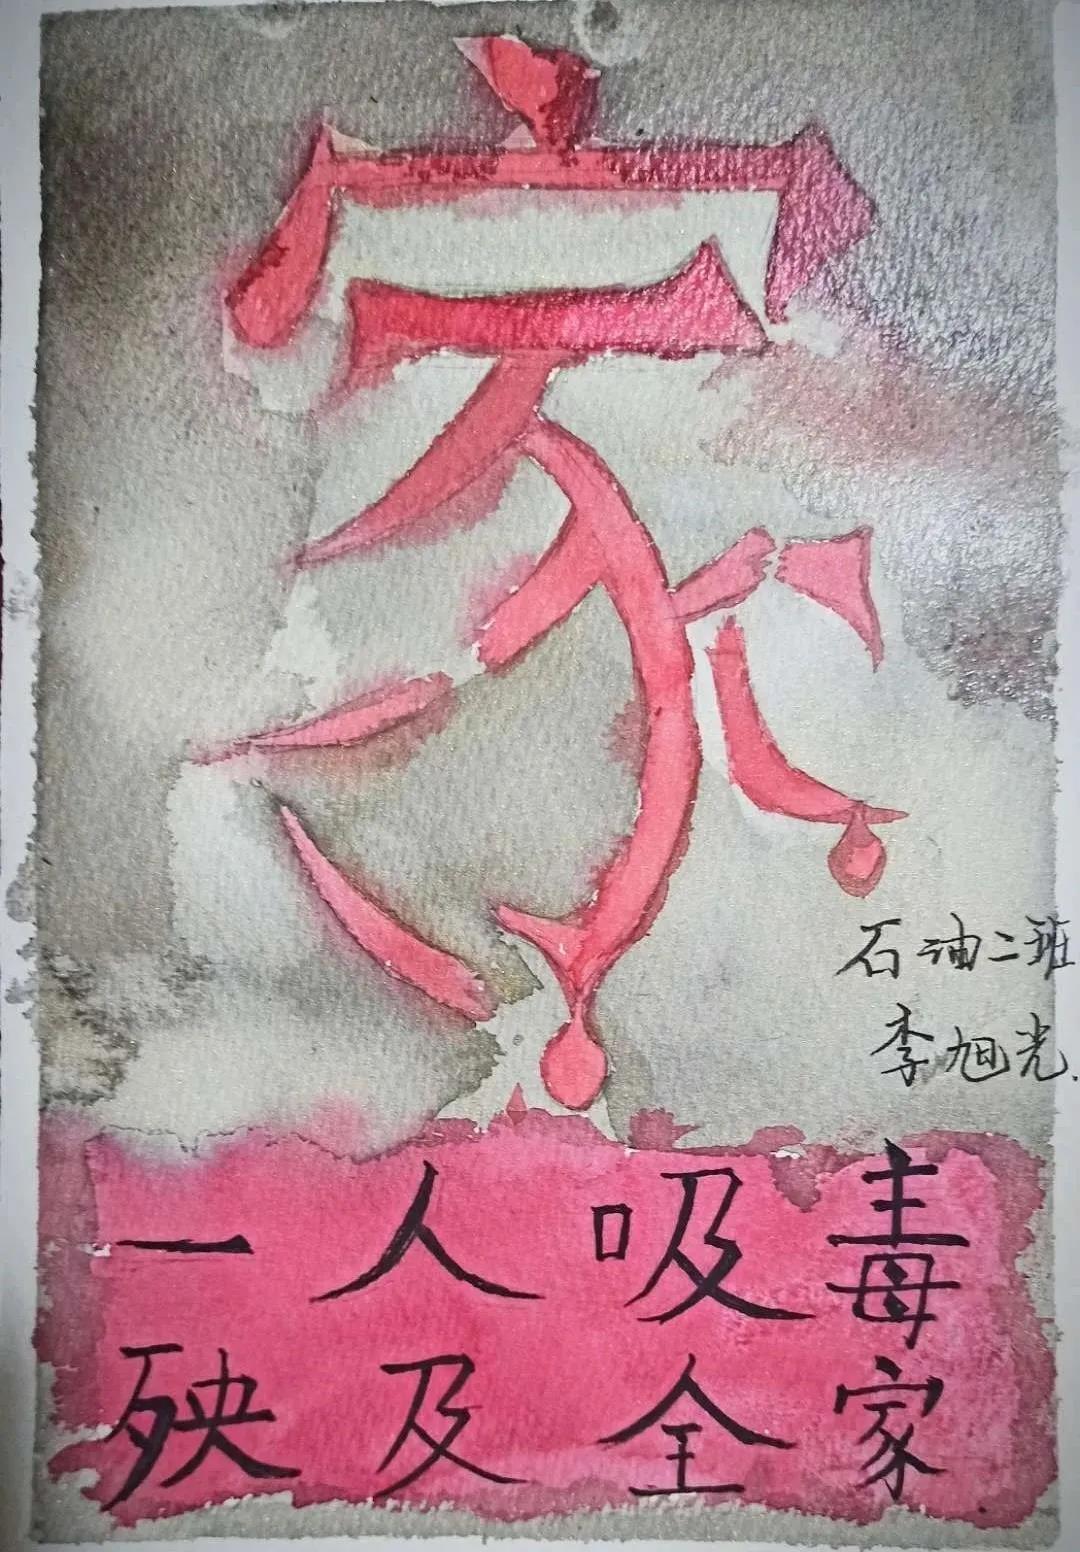 家
石油二班
李旭光.
一人吸毒
殃及全家